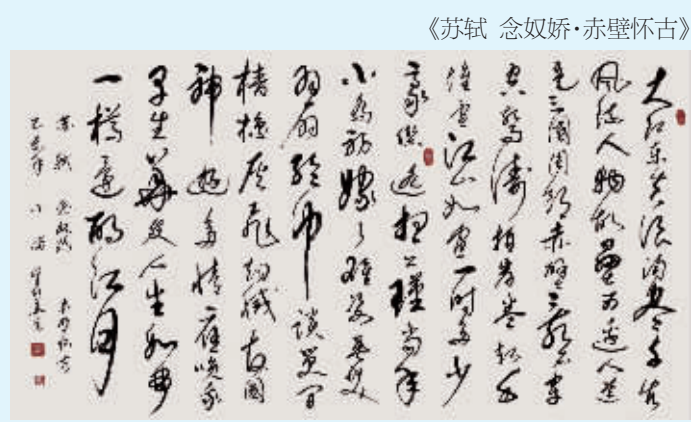 《苏轼 念奴娇·赤壁怀古》
大江东去浪淘尽千古
风流人物故垒西边人道
是三国周郎赤壁乱石穿
空惊涛拍岸卷起千
堆雪江山如画一时多少
豪杰遥想公瑾当年
小乔初嫁了雄姿英发
羽扇纶巾谈笑间
樯橹灰飞烟灭故国
神游多情应笑我
早生华发人生如梦
一樽还酹江月
苏轼 念奴娇 赤壁怀古